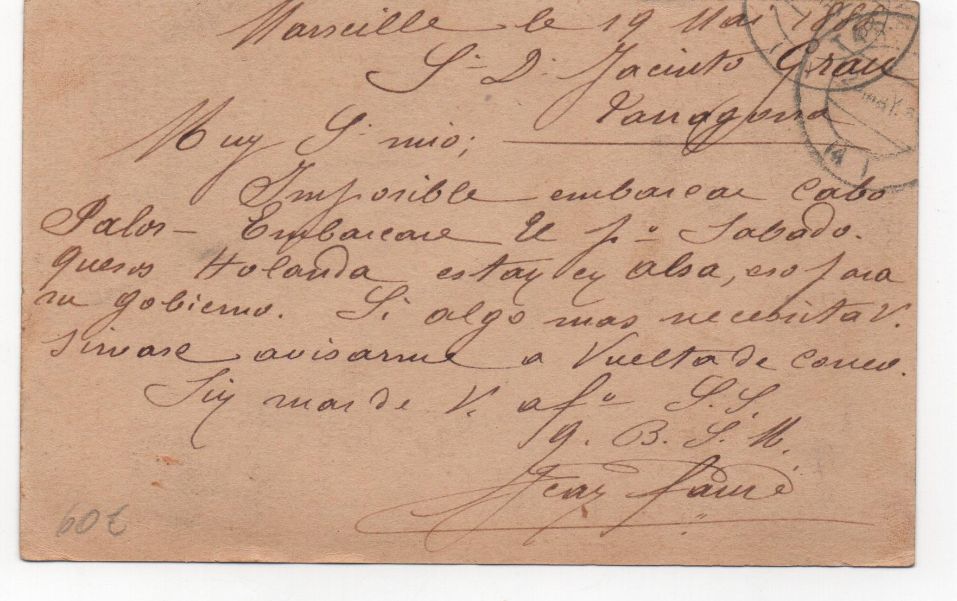 Marseille le 19 Mai 188
Sr Dn Jacinto Grau
Tarragona
Muy Sr mio;
Imposible embarcar Cabo
Palos - Embarcare El pº Sabado.
quesos Holanda estan en alsa, eso para
su gobierno. Si algo mas necesita V.
Sirvase avisarme a Vuelta de correo.
Sin mas de V. afº S.S.
q. B. S. M.
Jean Fauré
60€